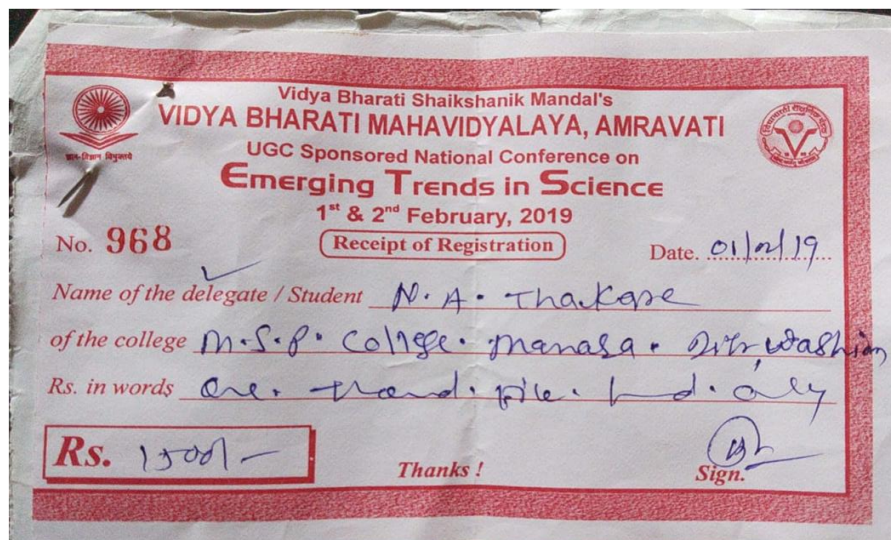 Vidya Bharati Shaikshanik Mandal's
VIDYA BHARATI MAHAVIDYALAYA, AMRAVATI
UGC Sponsored National Conference on
Emerging Trends in Science
1st & 2nd February, 2019
ज्ञान-विज्ञान विमुक्तये
No. 968
Receipt of Registration
Date. 01/02/19
Name of the delegate / Student N. A. Thakare
of the college M.S.P. College. Manasa. Washim
Rs. in words One. five. only
Rs. 1500/-
Thanks !
Sign.